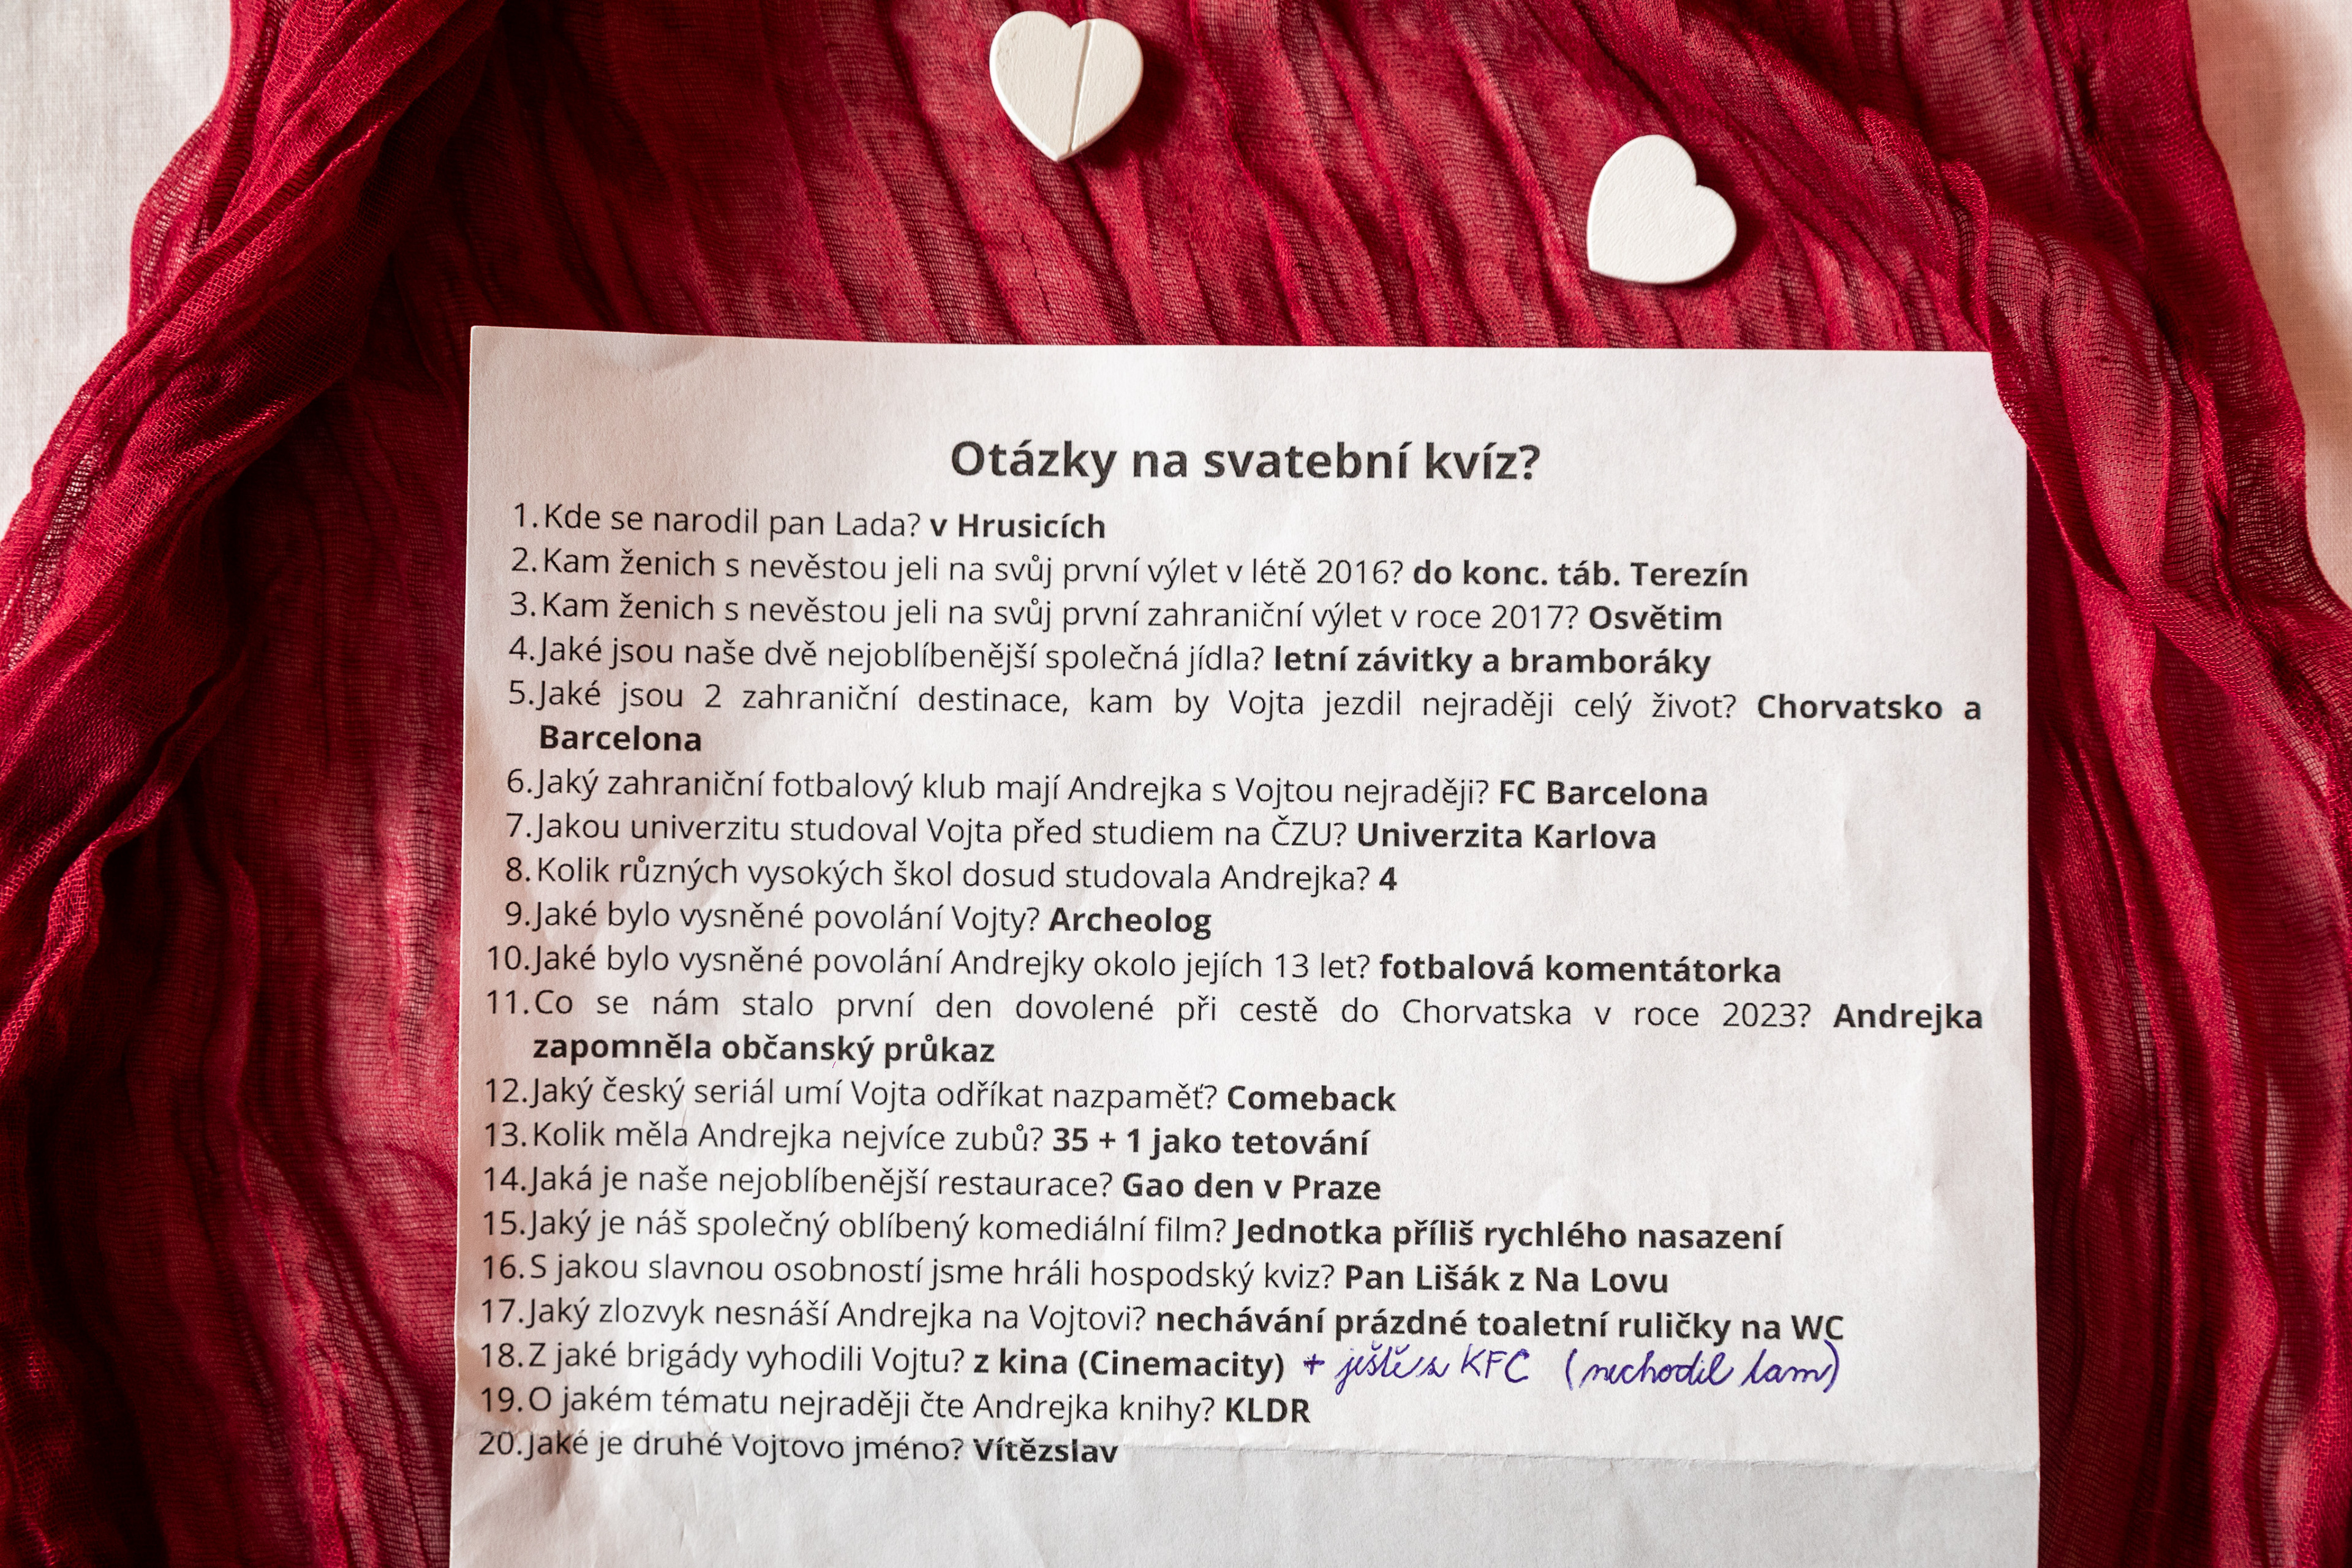 Otázky na svatební kvíz?
1. Kde se narodil pan Lada? v Hrusicích
2. Kam ženich s nevěstou jeli na svůj první výlet v létě 2016? do konc. táb. Terezín
3. Kam ženich s nevěstou jeli na svůj první zahraniční výlet v roce 2017? Osvětim
4. Jaké jsou naše dvě nejoblíbenější společná jídla? letní závitky a bramboráky
5. Jaké jsou 2 zahraniční destinace, kam by Vojta jezdil nejraději celý život? Chorvatsko a
Barcelona
6. Jaký zahraniční fotbalový klub mají Andrejka s Vojtou nejraději? FC Barcelona
7. Jakou univerzitu studoval Vojta před studiem na ČZU? Univerzita Karlova
8. Kolik různých vysokých škol dosud studovala Andrejka? 4
9. Jaké bylo vysněné povolání Vojty? Archeolog
10. Jaké bylo vysněné povolání Andrejky okolo jejích 13 let? fotbalová komentátorka
11. Co se nám stalo první den dovolené při cestě do Chorvatska v roce 2023? Andrejka
zapomněla občanský průkaz
12. Jaký český seriál umí Vojta odříkat nazpaměť? Comeback
13. Kolik měla Andrejka nejvíce zubů? 35 + 1 jako tetování
14. Jaká je naše nejoblíbenější restaurace? Gao den v Praze
15. Jaký je náš společný oblíbený komediální film? Jednotka příliš rychlého nasazení
16. S jakou slavnou osobností jsme hráli hospodský kviz? Pan Lišák z Na Lovu
17. Jaký zlozvyk nesnáší Andrejka na Vojtovi? nechávání prázdné toaletní ruličky na WC
18. Z jaké brigády vyhodili Vojtu? z kina (Cinemacity) + ještě z KFC (nechodil tam)
19. O jakém tématu nejraději čte Andrejka knihy? KLDR
20. Jaké je druhé Vojtovo jméno? Vítězslav